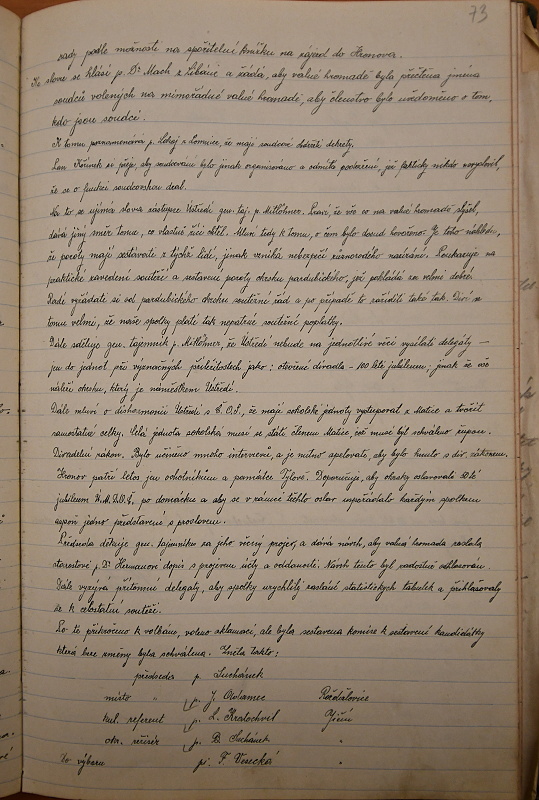 73
sady podle možnosti na spořitelní knížku na zájezd do Hronova.
Ke slovu se hlásí p. Dr Mach z Libáně a žádá, aby valné hromadě byla přečtena jména
soudců volených na mimořádné valné hromadě, aby členstvo bylo uvědoměno o tom,
kdo jsou soudci.
K tomu poznamenává p. Lukaj z Lomnice, že mají soudcové držeti dekrety.
Pan Kořínek si přeje, aby soudcování bylo jinak organisováno a odmítá podezření, jež fakticky nikdo nevyslovil,
že se o funkci soudcovskou deral.
Na to se ujímá slova zástupce Ústředí gen. taj. p. Mitlöhner. Praví, že vše co na valné hromadě slyšel,
dává jiný směr tomu, co vlastně říci chtěl. Mluví tedy k tomu, o čem bylo dosud hovořeno. Je toho náhledu,
že poroty mají sestávati z týchž lidí, jinak vzniká nebezpečí různorodého nazírání. Poukazuje na
praktické zavedení soutěží a sestavení poroty okrsku pardubického, jež pokládá za velmi dobré.
Radí vyžádati si od pardubického okrsku soutěžní řád a po případě to zaříditi také tak. Diví se
tomu velmi, že naše spolky platí tak nepatrné soutěžní poplatky.
Dále sděluje gen. tajemník p. Mitlöhner, že Ústředí nebude na jednotlivé věci vysílati delegáty —
jen do jednot při význačných příležitostech jako: otevření divadla - 100 leté jubileum; jinak že vše
náleží okrsku, který je náměstkem Ústředí.
Dále mluví o disharmonii Ústředí s Č.O.S., že mají sokolské jednoty vystupovat z Matice a tvořit
samostatné celky. Celá jednota sokolská musí se státi členem Matice, což musí být schváleno župou.
Divadelní zákon. Bylo učiněno mnoho intervencí, a je nutno apelovati, aby bylo hnuto s div. zákonem.
Hronov patří letos jen ochotníkům a památce Tylově. Doporučuje, aby okrsky oslavovaly 50 leté
jubileum Ú.M.D.O.Č. po domácku a aby se v rámci těchto oslav uspořádalo každým spolkem
aspoň jedno představení s proslovem.
Předseda děkuje gen. tajemníku za jeho věcný projev, a dává návrh, aby valná hromada zaslala
starostovi p. Dr Hermanovi dopis s projevem úcty a oddanosti. Návrh tento byl radostně odhlasován.
Dále vyzývá přítomné delegáty, aby spolky urychlily zaslání statistických tabulek a přihlašovaly
se k celostátní soutěži.
Po té přikročeno k volbám, voleno aklamací, ale byla sestavena komise k sestavení kandidátky
která beze změny byla schválena. Zněla takto:
předseda p. Suchánek
místo " p. J. Adamec Rožďalovice
kul. referent p. L. Kratochvíl Jičín
okr. režisér p. B. Suchánek "
Do výboru pí. F. Vesecká "